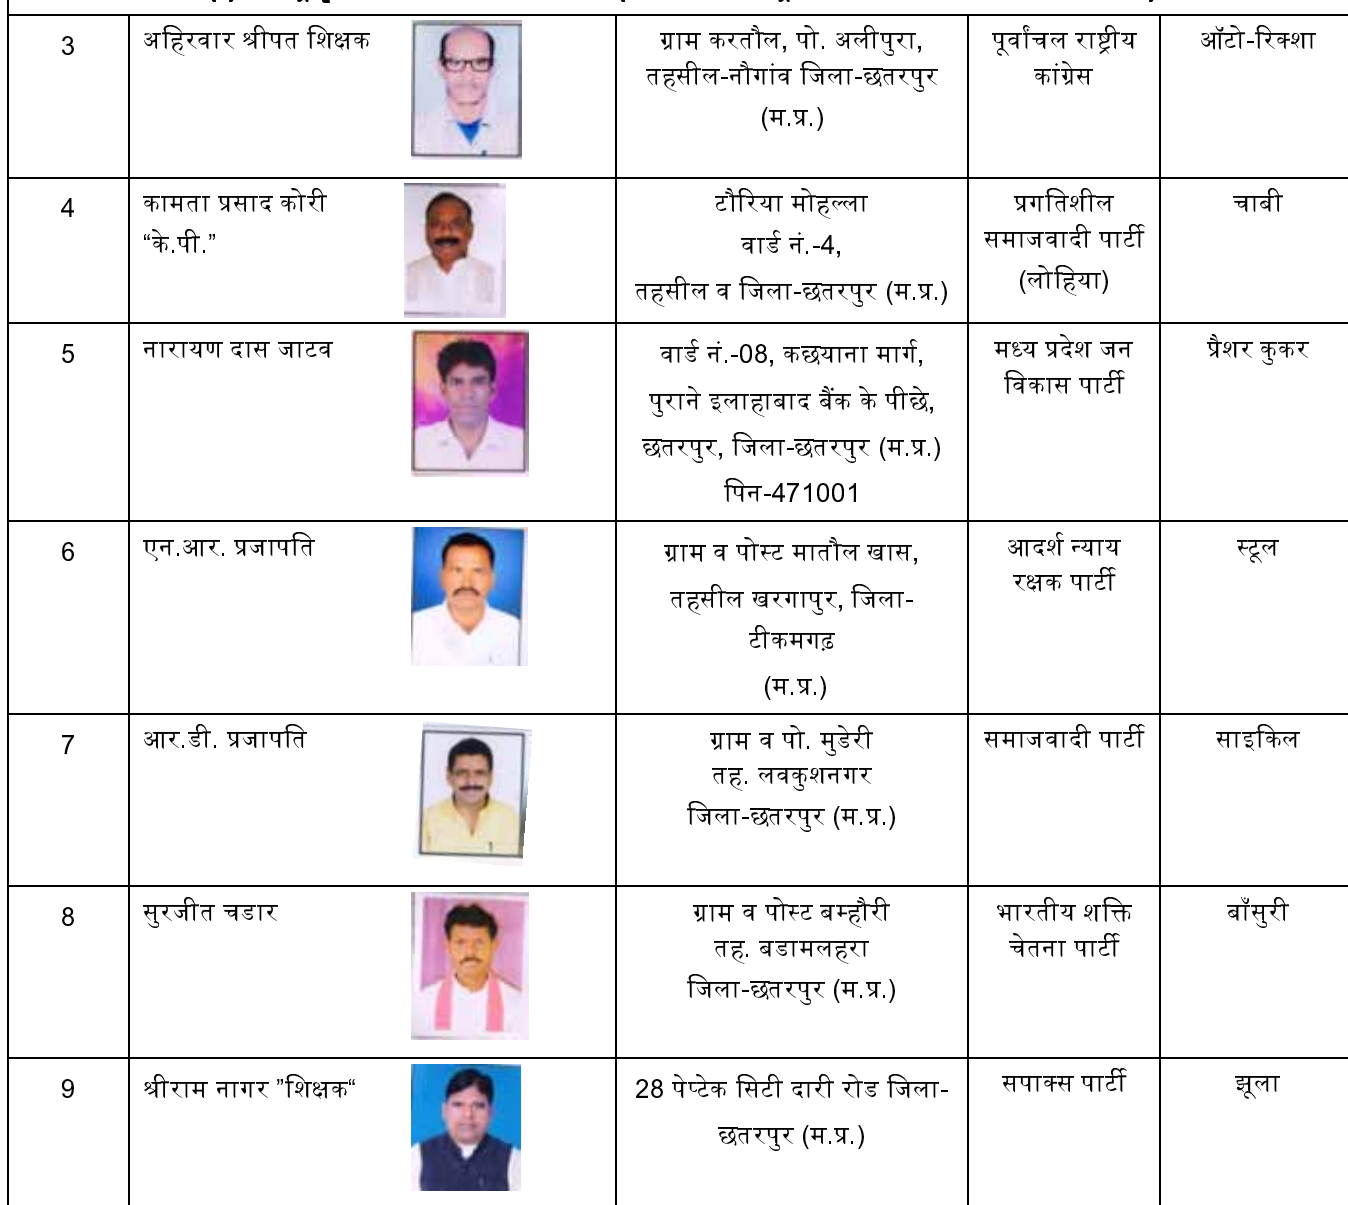 3
अहिरवार श्रीपत शिक्षक
ग्राम करतौल, पो. अलीपुरा,
तहसील-नौगांव जिला-छतरपुर
(म.प्र.)
पूर्वांचल राष्ट्रीय
कांग्रेस
ऑटो-रिक्शा
4
कामता प्रसाद कोरी
“के.पी.”
टौरिया मोहल्ला
वार्ड नं.-4,
तहसील व जिला-छतरपुर (म.प्र.)
प्रगतिशील
समाजवादी पार्टी
(लोहिया)
चाबी
5
नारायण दास जाटव
वार्ड नं.-08, कछयाना मार्ग,
पुराने इलाहाबाद बैंक के पीछे,
छतरपुर, जिला-छतरपुर (म.प्र.)
पिन-471001
मध्य प्रदेश जन
विकास पार्टी
प्रैशर कुकर
6
एन.आर. प्रजापति
ग्राम व पोस्ट मातौल खास,
तहसील खरगापुर, जिला-
टीकमगढ़
(म.प्र.)
आदर्श न्याय
रक्षक पार्टी
स्टूल
7
आर.डी. प्रजापति
ग्राम व पो. मुडेरी
तह. लवकुशनगर
जिला-छतरपुर (म.प्र.)
समाजवादी पार्टी
साइकिल
8
सुरजीत चडार
ग्राम व पोस्ट बम्हौरी
तह. बडामलहरा
जिला-छतरपुर (म.प्र.)
भारतीय शक्ति
चेतना पार्टी
बाँसुरी
9
श्रीराम नागर ”शिक्षक“
28 पेप्टेक सिटी दारी रोड जिला-
छतरपुर (म.प्र.)
सपाक्स पार्टी
झूला